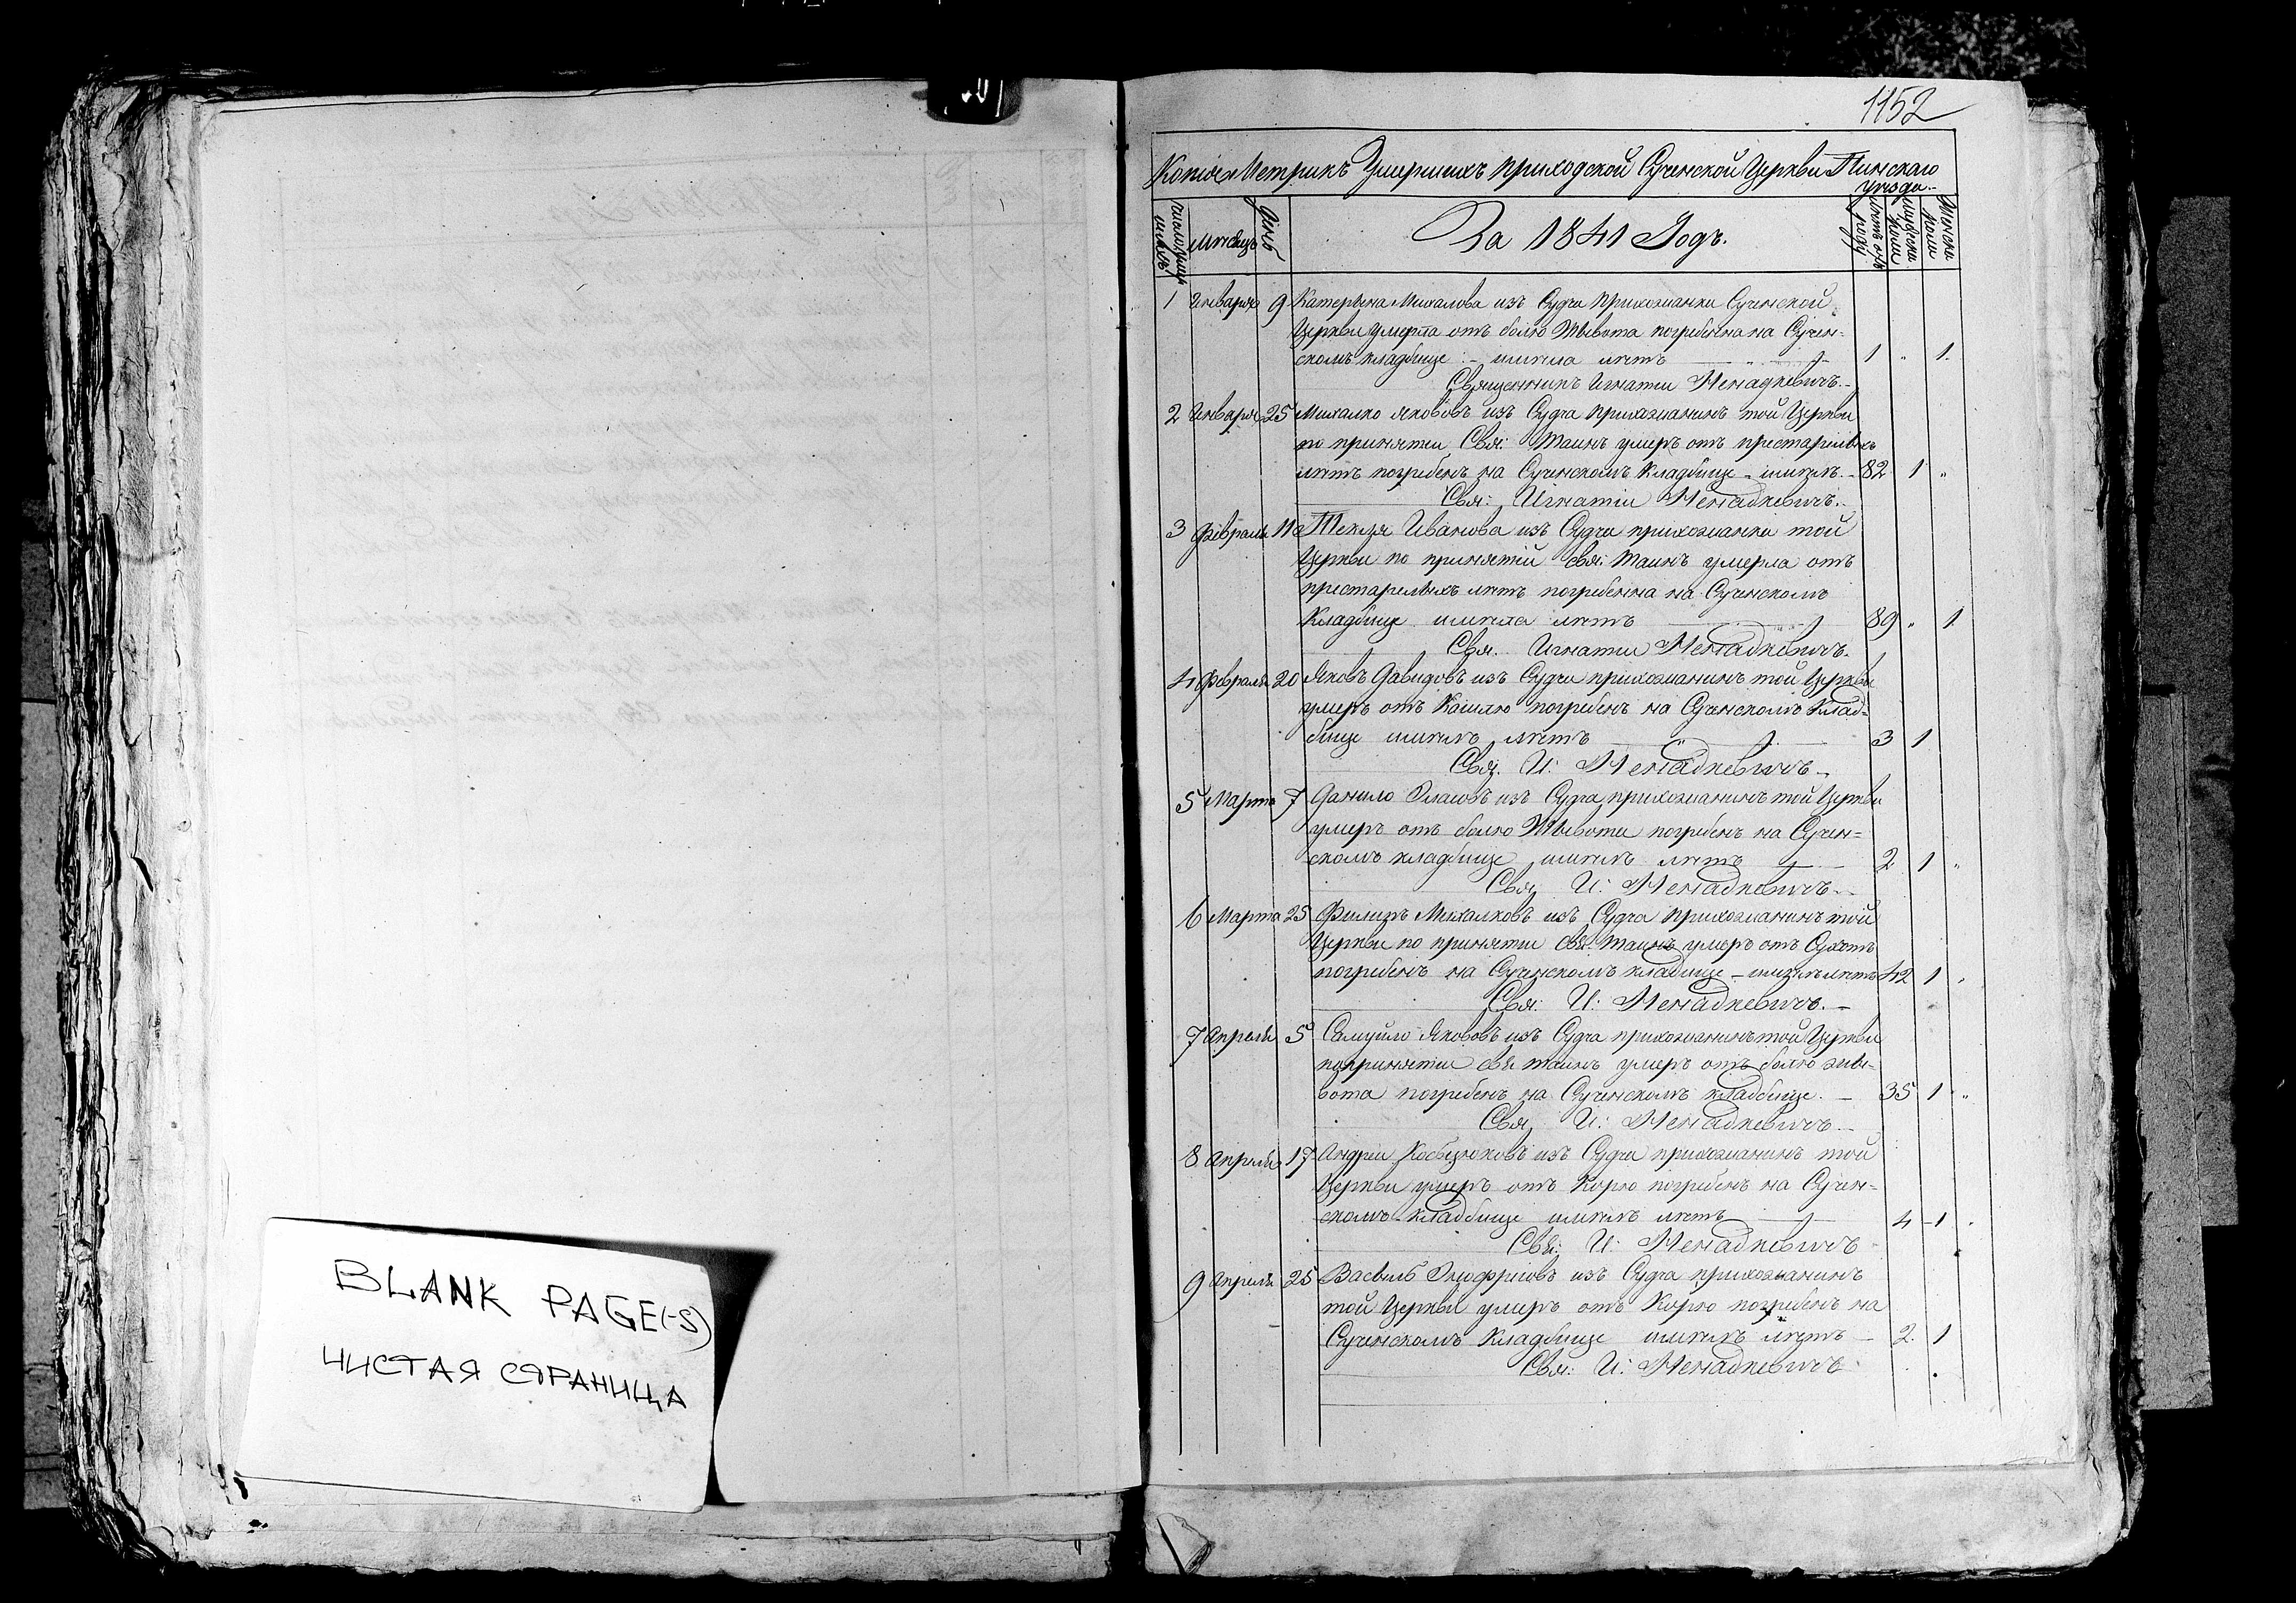 1152
Копія Метрикъ Умершихъ приходской Сученской Церкви Пинскаго
уезда.
Мѣсяцъ
День
За 1841 Годъ.
1 Января 9 Катерына Михалова изъ Судча прихожанка Сученской
Церкви умерла отъ болю Жывота погребенна на Сучен-
скомъ кладбище :- имѣла лѣтъ 1 " 1.
Священникъ Игнатіи Ненадкевичъ.-
2 Января 25 Михалко Яковъвъ изъ Судча прихожанинъ той Церкви
по принятіи Свя: Таинъ умеръ отъ престарелыхъ
лѣтъ погребенъ на Сученскомъ Кладбище - имѣлъ.- 82 1 "
Свя: Игнатіи Ненадкевичъ.-
3 Февраля 11 Текля Иванова изъ Судча прихожанка той
Церкви по принятіи Свя: Таинъ умерла отъ
престарелыхъ лѣтъ погребенна на Сученскомъ
Кладбище имѣла лѣтъ 89 " 1
Свя. Игнатіи Ненадкевичъ.
4 Февраля 20 Яковъ Давидовъ изъ Судча прихожанинъ той Церкви
умеръ отъ Кашлю погребенъ на Сученскомъ Клад=
бище имѣлъ лѣтъ 3 1
Свя. И: Ненадкевичъ -
5 Марта 7 Данило изъ Судча прихожанинъ той Церкви
умеръ отъ болю Жывота погребенъ на Сучен=
скомъ кладбище имѣлъ лѣтъ 2 1 "
Свя И: Ненадкевичъ.-
6 Марта 25 Филипъ Михалковъ изъ Судча прихожанинъ той
Церкви по принятіи Свя: Таинъ умеръ отъ Сухотъ
погребенъ на Сученскомъ кладбище - имѣлъ лѣтъ 42 1 "
Свя: И: Ненадкевичъ. -
7 Апреля 5 Самуйло Яковъвъ изъ Судча прихожанинъ той Церкви
по принятіи Свя Таинъ умеръ отъ болю жы=
вота погребенъ на Сученскомъ кладбище. - 35 1 "
Свя И: Ненадкевичъ
8 Апреля 17 Андреи изъ Судча прихожанинъ той
Церкви умеръ отъ Корю погребенъ на Сучен=
скомъ кладбище имѣлъ лѣтъ 4 1
Свя: И: Ненадкевичъ
9 Апреля 25 Васыль Онофріовъ изъ Судча прихожанинъ
той Церкви умеръ отъ Корю погребенъ на
Сученскомъ Кладбище имѣлъ лѣтъ - 2. 1
Свя: И: Ненадкевичъ
BLANK PAGE(-S)
ЧИСТАЯ СТРАНИЦА